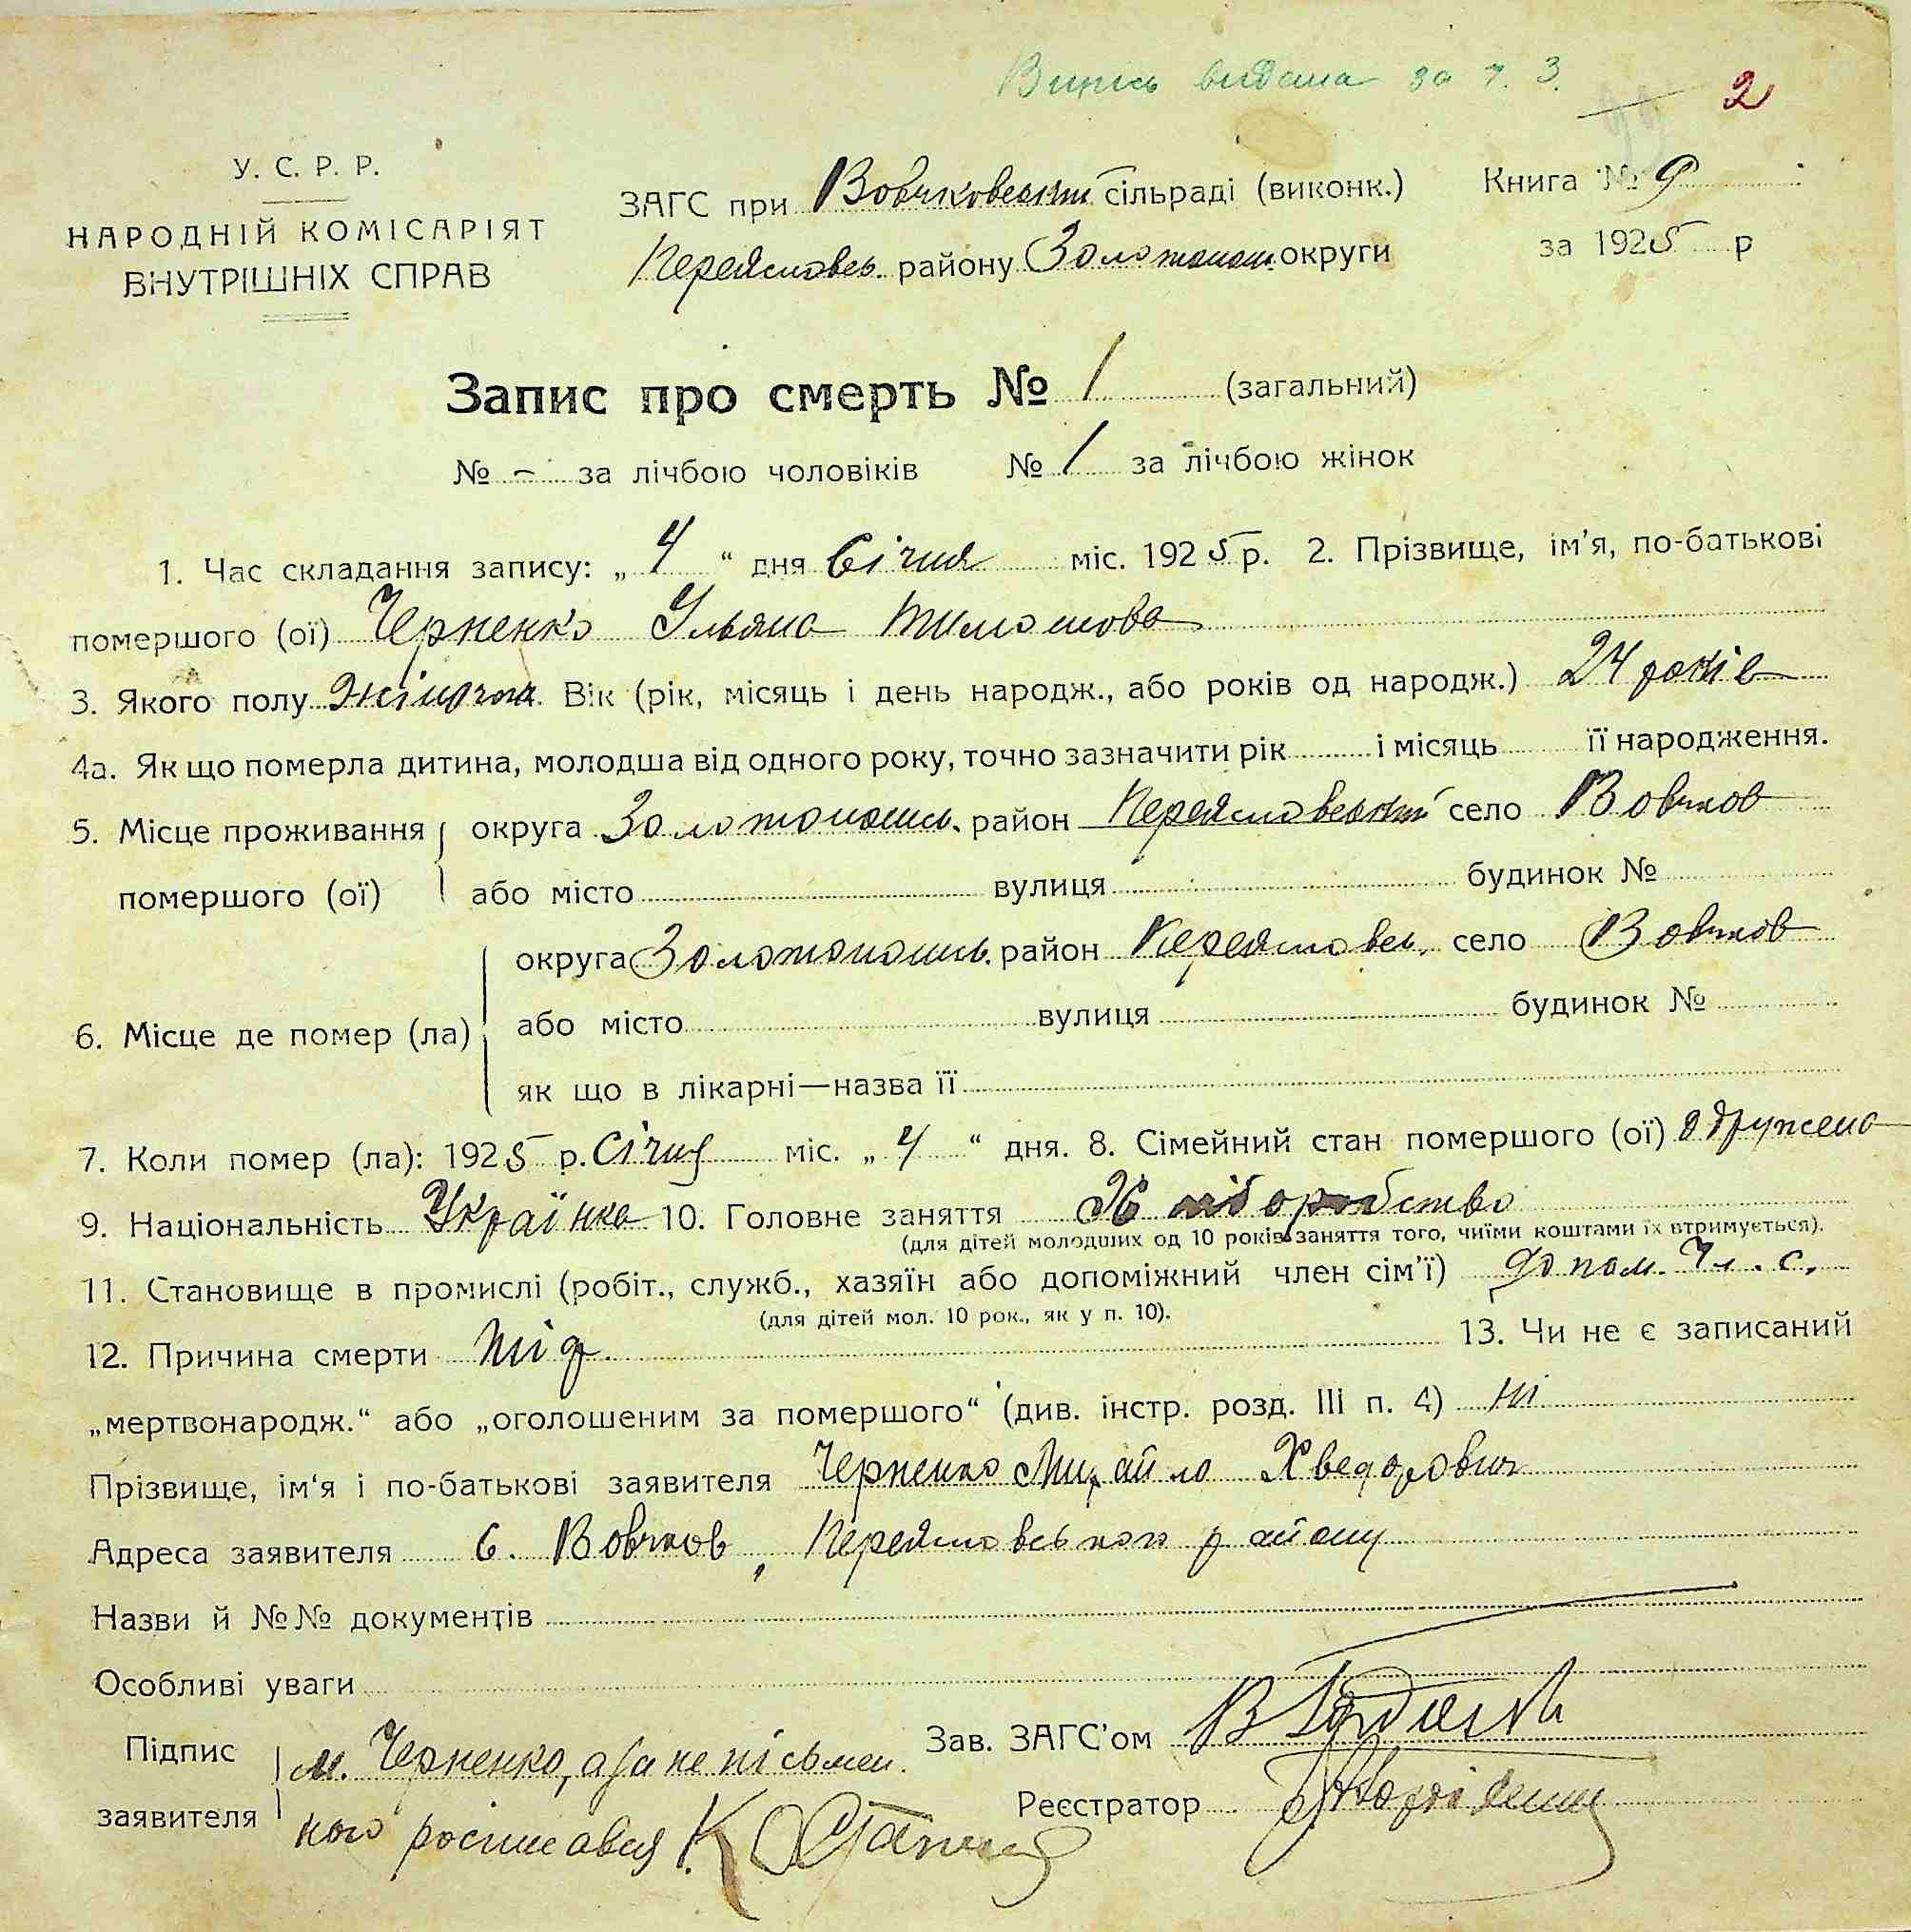 Випись видана за № 3.
2
У. С. Р. Р.
НАРОДНІЙ КОМІСАРІЯТ
ВНУТРІШНІХ СПРАВ
ЗАГС при Вовчковський сільраді (виконк.)
Переясловсь. району Золотонош. округи
Книга № 9
за 1925 р
Запис про смерть № 1 (загальний)
№ – за лічбою чоловіків № 1 за лічбою жінок
1. Час складання запису: „ 4 “ дня Січня міс. 1925 р. 2. Прізвище, ім'я, по-батькові
помершого (ої) Черненко Ульяна Тимошова
3. Якого полу Жіноча. Вік (рік, місяць і день народж., або років од народж.) 24 років
4а. Як що померла дитина, молодша від одного року, точно зазначити рік і місяць її народження.
5. Місце проживання округа Золотоношсь. район Переясловський село Вовчков
помершого (ої) або місто вулиця будинок №
округа Золотоношсь. район Переясловсь. село Вовчков
6. Місце де помер (ла) або місто вулиця будинок №
як що в лікарні—назва її
7. Коли помер (ла): 1925 р. Січня міс. „ 4 “ дня. 8. Сімейний стан помершого (ої) одружена
9. Національність Українка 10. Головне заняття Хліборобство
(для дітей молодших од 10 років заняття того, чиїми коштами їх втримується).
11. Становище в промислі (робіт., служб., хазяїн або допоміжний член сім'ї) допом. чл. с.
(для дітей мол. 10 рок., як у п. 10).
12. Причина смерти 13. Чи не є записаний
„мертвонародж.“ або „оголошеним за помершого“ (див. інстр. розд. III п. 4) ні
Прізвище, ім'я і по-батькові заявителя Черненко Михайло Хведорович
Адреса заявителя с. Вовчков, Переясловського району
Назви й №№ документів
Особливі уваги
Підпис заявителя М. Черненко, а за не письмен.
ного росписався К Остапенко
Зав. ЗАГС'ом В
Реєстратор